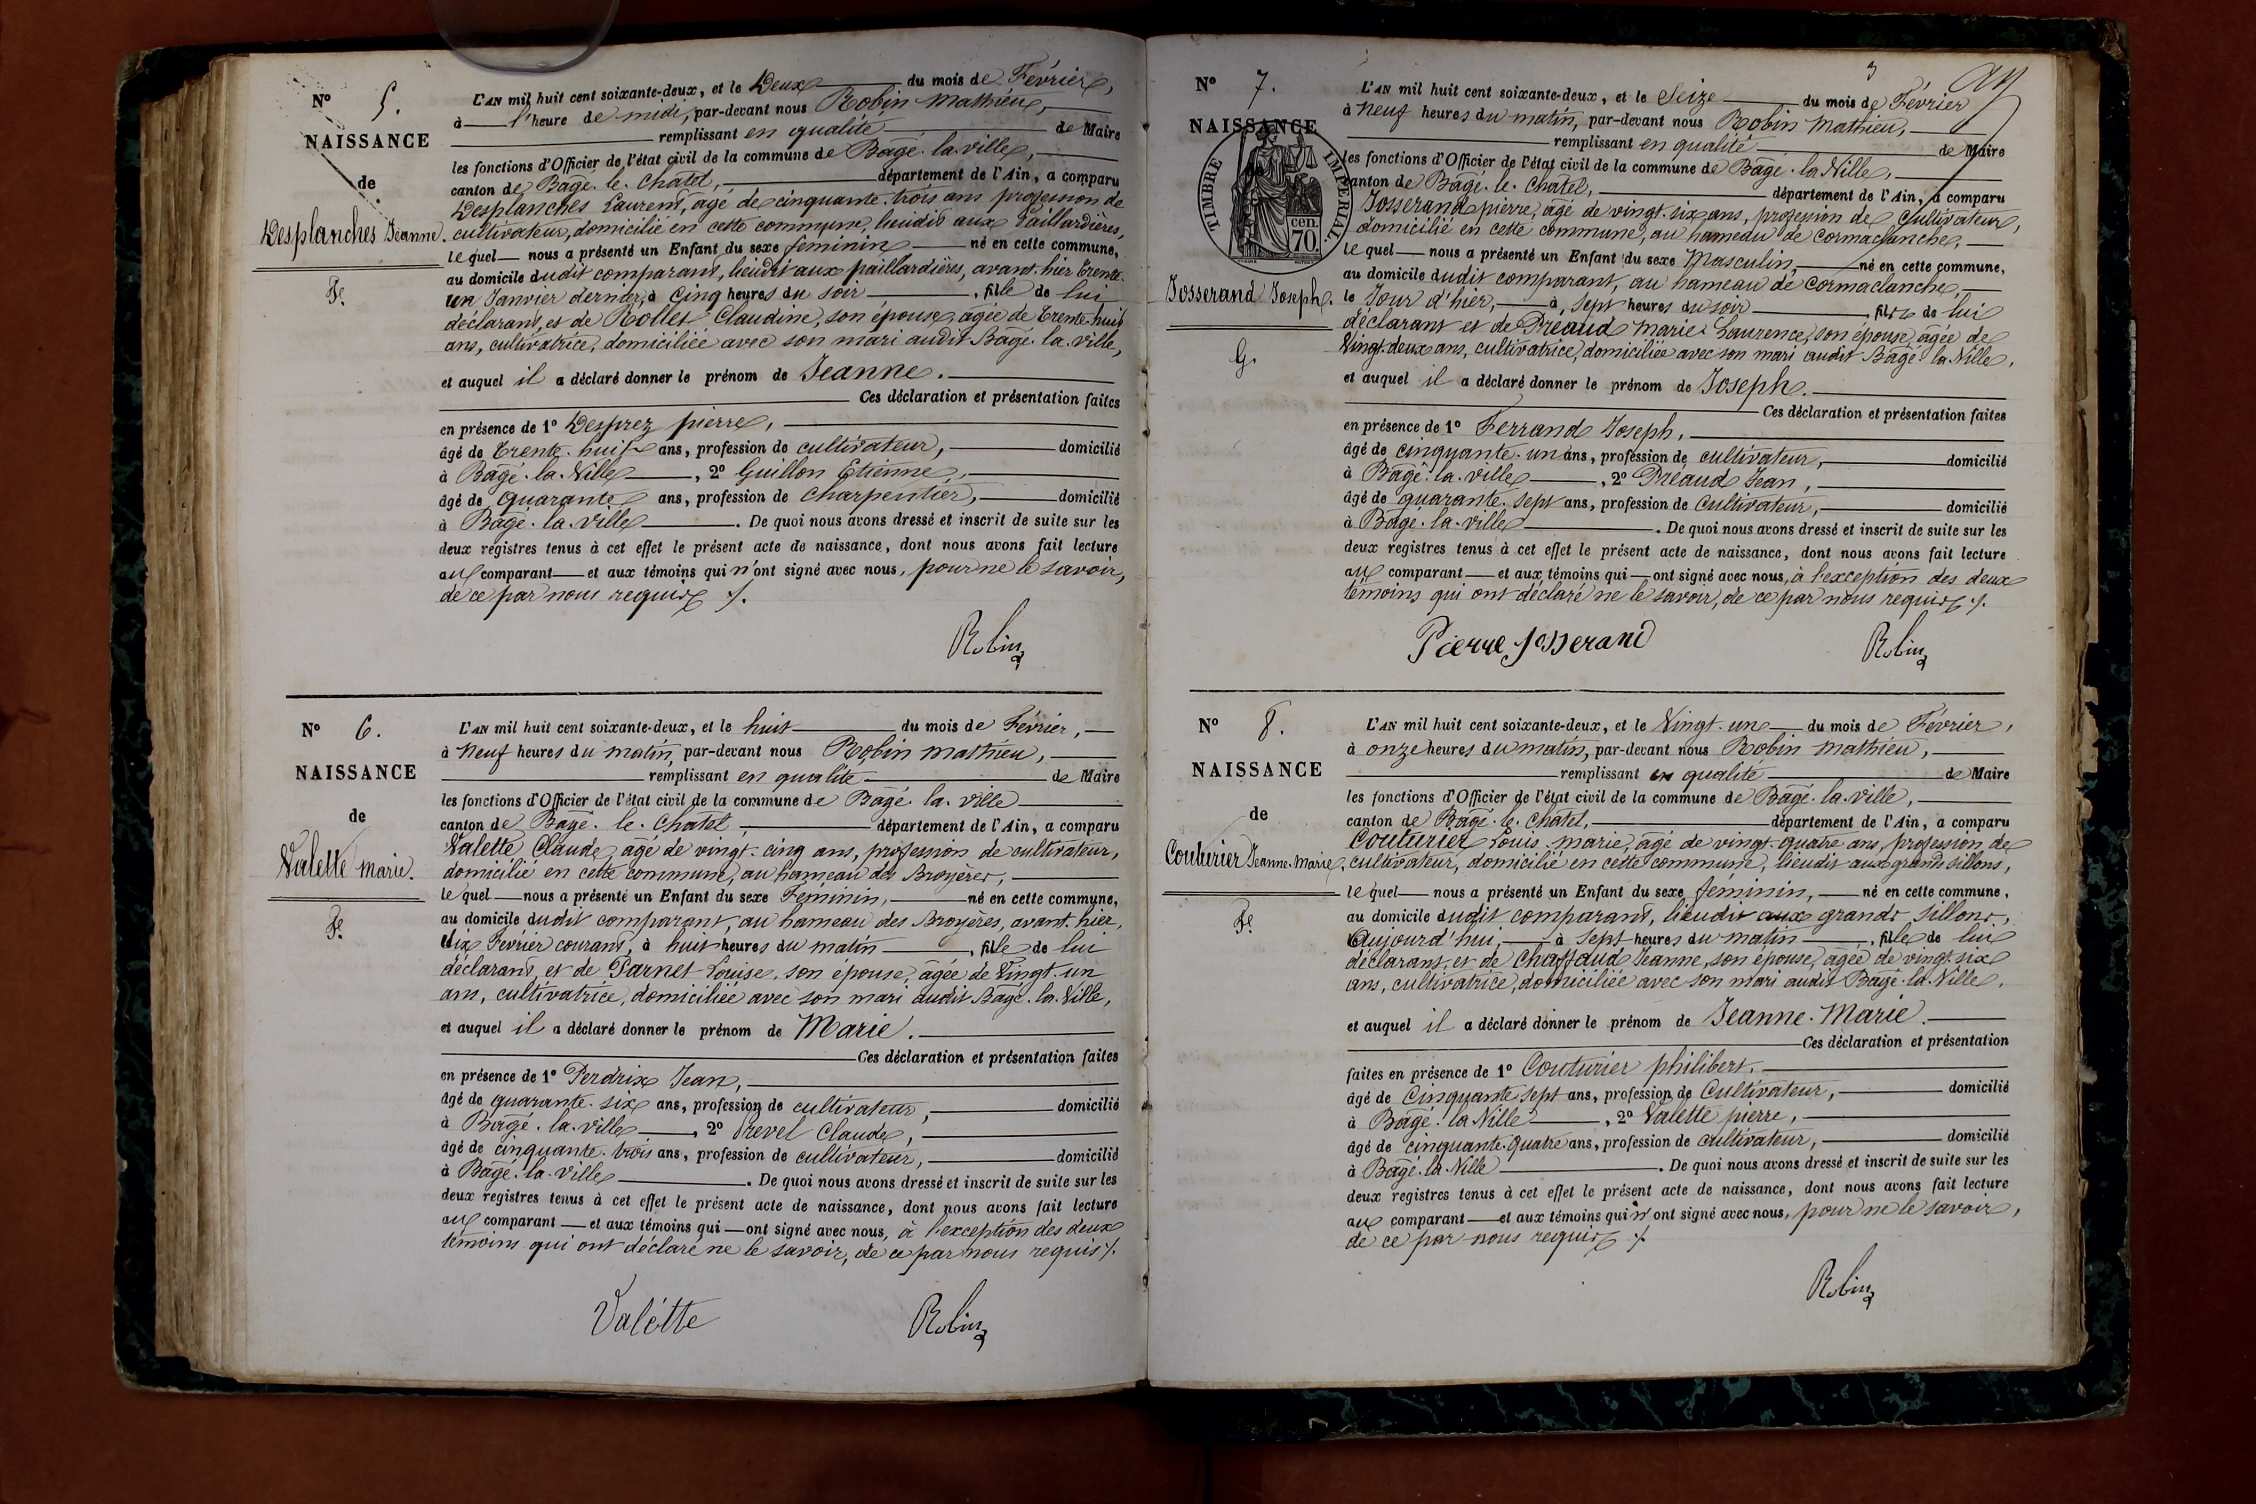 N° 5.
NAISSANCE
de
Desplanches Jeanne.
Fe.
L'AN mil huit cent soixante-deux, et le Deux du mois de Février,
à l'heure de midi, par-devant nous Robin Mathieu,
remplissant en qualité de Maire
les fonctions d'Officier de l'état civil de la commune de Bagé-la-ville,
canton de Bagé-le-Chatel, département de l'Ain, a comparu
Desplanches Laurent, âgé de cinquante-trois ans profession de
cultivateur, domicilié en cette commune, lieudit aux Paillardières,
lequel nous a présenté un Enfant du sexe féminin né en cette commune,
au domicile dudit comparant, lieudit aux paillardières, avant-hier trente-
un Janvier dernier, à Cinq heures du soir, fille de lui
déclarant, et de Rollet Claudine, son épouse, âgée de trente-huit
ans, cultivatrice, domiciliée avec son mari audit Bâgé-la-ville,
et auquel il a déclaré donner le prénom de Jeanne.
Ces déclaration et présentation faites
en présence de 1° Desprez pierre,
âgé de trente-huit ans, profession de cultivateur, domicilié
à Bagé-la-Ville, 2° Guillon Etienne,
âgé de quarante ans, profession de charpentier, domicilié
à Bagé-la-Ville. De quoi nous avons dressé et inscrit de suite sur les
deux registres tenus à cet effet le présent acte de naissance, dont nous avons fait lecture
au comparant et aux témoins qui n'ont signé avec nous, pour ne le savoir,
de ce par nous requis ./.
Robin
N° 6.
NAISSANCE
de
Valette Marie.
Fe.
L'AN mil huit cent soixante-deux, et le huit du mois de Février,
à Neuf heures du matin, par-devant nous Robin Mathieu,
remplissant en qualité de Maire
les fonctions d'Officier de l'état civil de la commune de Bâgé-la-ville
canton de Bagé-le-Chatel, département de l'Ain, a comparu
Valette Claude, âgé de vingt-cinq ans, profession de cultivateur,
domicilié en cette commune, au hameau des Broyères,
lequel nous a présenté un Enfant du sexe Féminin, né en cette commune,
au domicile dudit comparant, au hameau des Broyères, avant-hier,
six Février courant, à huit heures du matin, fille de lui
déclarant, et de Parnet Louise, son épouse, âgée de Vingt-un
ans, cultivatrice, domiciliée avec son mari audit Bâgé-la-Ville,
et auquel il a déclaré donner le prénom de Marie.
Ces déclaration et présentation faites
en présence de 1° Perdrix Jean,
âgé de quarante-six ans, profession de cultivateur, domicilié
à Bagé-la-ville, 2° Prevel Claude,
âgé de cinquante-trois ans, profession de cultivateur, domicilié
à Bagé-la-Ville. De quoi nous avons dressé et inscrit de suite sur les
deux registres tenus à cet effet le présent acte de naissance, dont nous avons fait lecture
au comparant et aux témoins qui ont signé avec nous, à l'exception des deux
témoins qui ont déclaré ne le savoir, de ce par nous requis ./.
Valétte Robin
3
N° 7.
NAISSANCE
TIMBRE IMPERIAL.
cen. 70.
Josserand Joseph.
G.
L'AN mil huit cent soixante-deux, et le Seize du mois de Février
à Neuf heures du matin, par-devant nous Robin Mathieu,
remplissant en qualité de Maire
les fonctions d'Officier de l'état civil de la commune de Bâgé-la-Ville,
canton de Bâgé-le-Châtel, département de l'Ain, a comparu
Josserand pierre, âgé de vingt-six ans, profession de Cultivateur,
domicilié en cette commune, au hameau de Cormaclanche,
lequel nous a présenté un Enfant du sexe Masculin, né en cette commune,
au domicile dudit comparant, au hameau de Cormaclanche,
le Jour d'hier, à sept heures du soir, fils de lui
déclarant et de Préaud Marie-Laurence, son épouse, âgée de
Vingt-deux ans, cultivatrice, domiciliée avec son mari audit Bâgé-la-Ville,
et auquel il a déclaré donner le prénom de Joseph.
Ces déclaration et présentation faites
en présence de 1° Ferrand Joseph,
âgé de cinquante-un ans, profession de cultivateur, domicilié
à Bâgé-la-ville, 2° Préaud Jean,
âgé de quarante-sept ans, profession de Cultivateur, domicilié
à Bâgé-la-ville. De quoi nous avons dressé et inscrit de suite sur les
deux registres tenus à cet effet le présent acte de naissance, dont nous avons fait lecture
au comparant et aux témoins qui ont signé avec nous, à l'exception des deux
témoins qui ont déclaré ne le savoir, de ce par nous requis ./.
Pierre Josserand Robin
N° 8.
NAISSANCE
de
Couturier Jeanne-Marie.
Fe.
L'AN mil huit cent soixante-deux, et le Vingt-un du mois de Février,
à onze heures du matin, par-devant nous Robin Mathieu,
remplissant en qualité de Maire
les fonctions d'Officier de l'état civil de la commune de Bâgé-la-ville,
canton de Bâgé-le-Châtel, département de l'Ain, a comparu
Couturier Louis-Marie, âgé de vingt-quatre ans, profession de
cultivateur, domicilié en cette commune, lieudit aux grands sillons,
lequel nous a présenté un Enfant du sexe féminin, né en cette commune,
au domicile dudit comparant, lieudit aux grands sillons,
Aujourd'hui, à sept heures du matin, fille de lui
déclarant, et de Chaffaud Jeanne, son épouse, âgée de vingt-six
ans, cultivatrice, domiciliée avec son mari audit Bâgé-la-Ville,
et auquel il a déclaré donner le prénom de Jeanne-Marie.
Ces déclaration et présentation
faites en présence de 1° Couturier philibert,
âgé de Cinquante sept ans, profession de Cultivateur, domicilié
à Bagé-la-Ville, 2° Valette pierre,
âgé de cinquante-quatre ans, profession de cultivateur, domicilié
à Bagé-la-Ville. De quoi nous avons dressé et inscrit de suite sur les
deux registres tenus à cet effet le présent acte de naissance, dont nous avons fait lecture
au comparant et aux témoins qui n'ont signé avec nous, pour ne le savoir,
de ce par nous requis ./.
Robin